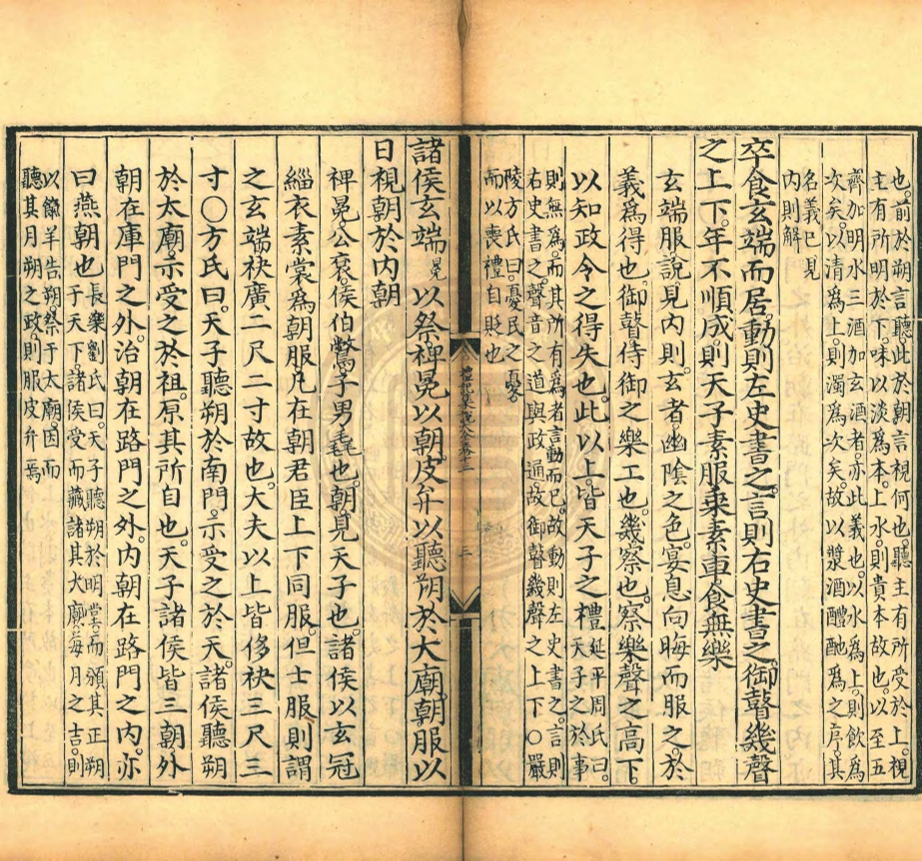 也前於朔言聽於朝言視何也聽主有所受於上視
主有所明於下味以淡為本上水則貴本故也以至五
齊加明水三酒加玄酒者亦此義也以水為上則飲為
次矣以清為上則濁為次矣故以漿酒醴酏為之序其
名義已見
內則解
卒食玄端而居動則左史書之言則右史書之御瞽幾聲
之上下年不順成則天子素服乘素車食無樂
玄端服說見內則玄者幽陰之色宴息向晦而服之於
義為得也御瞽侍御之樂工也幾察也察樂聲之高下
以知政令之得失也此以上皆天子之禮
延平周氏曰
天子之於事
則無為而其所有為者言動而已故動則左史書之言則
右史書之聲音之道與政通故御瞽幾聲之上下○嚴
陵方氏曰憂民之憂
而以喪禮自貶也
諸侯玄端冕以祭裨冕以朝皮弁以聽朔於大廟朝服以
日視朝於內朝
裨冕公袞侯伯鷩子男毳也朝見天子也諸侯以玄冠
緇衣素裳為朝服凡在朝君臣上下同服但士服則謂
之玄端袂廣二尺二寸故也大夫以上皆侈袂三尺三
寸○方氏曰天子聽朔於南門示受之於天諸侯聽朔
於太廟示受之於祖原其所自也天子諸侯皆三朝外
朝在庫門之外治朝在路門之外內朝在路門之內亦
曰燕朝也
長樂劉氏曰天子聽朔於明堂而頒其正朔
于天下諸侯受而藏諸其大廟每月之吉則
以餼羊告朔祭于太廟因而
聽其月朔之政則服皮弁焉